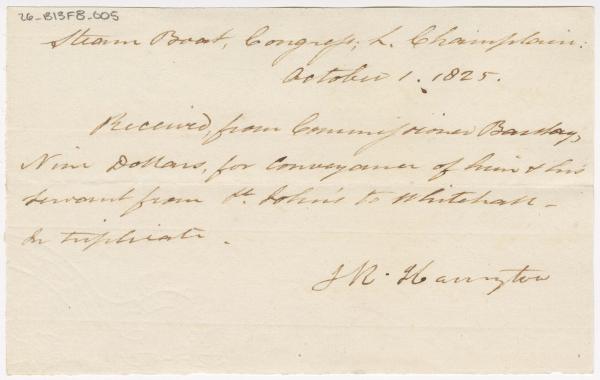 26-B13F8-005
Steam Boat, Congress; L. Champlain:
October 1. 1825.
Received, from Commissioner Barclay,
Nine Dollars, for Conveyance of him & his
servant from St. John's to Whitehall -
In triplicate.
J R. Harrington